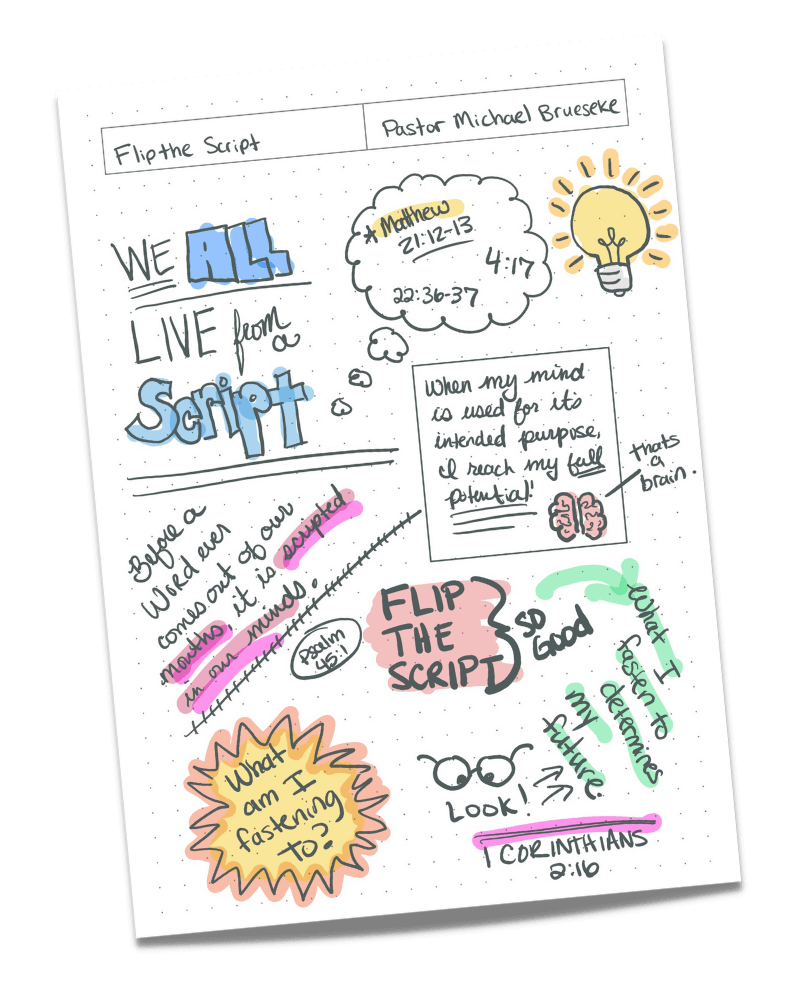 Flip the Script
Pastor Michael Brueseke
WE ALL
LIVE from
a
Script
* Matthew
21:12-13
4:17
22:36-37
When my mind
is used for it's
intended purpose,
I reach my full
potential!
thats
a
brain.
Before a
Word ever
comes out of our
mouths, it is scripted
in our minds.
Psalm
45:1
FLIP
THE
SCRIPT
SO
GOOD
What I
fasten to
determines
my
future.
What
am I
fastening
to?
LOOK!
1 CORINTHIANS
2:16